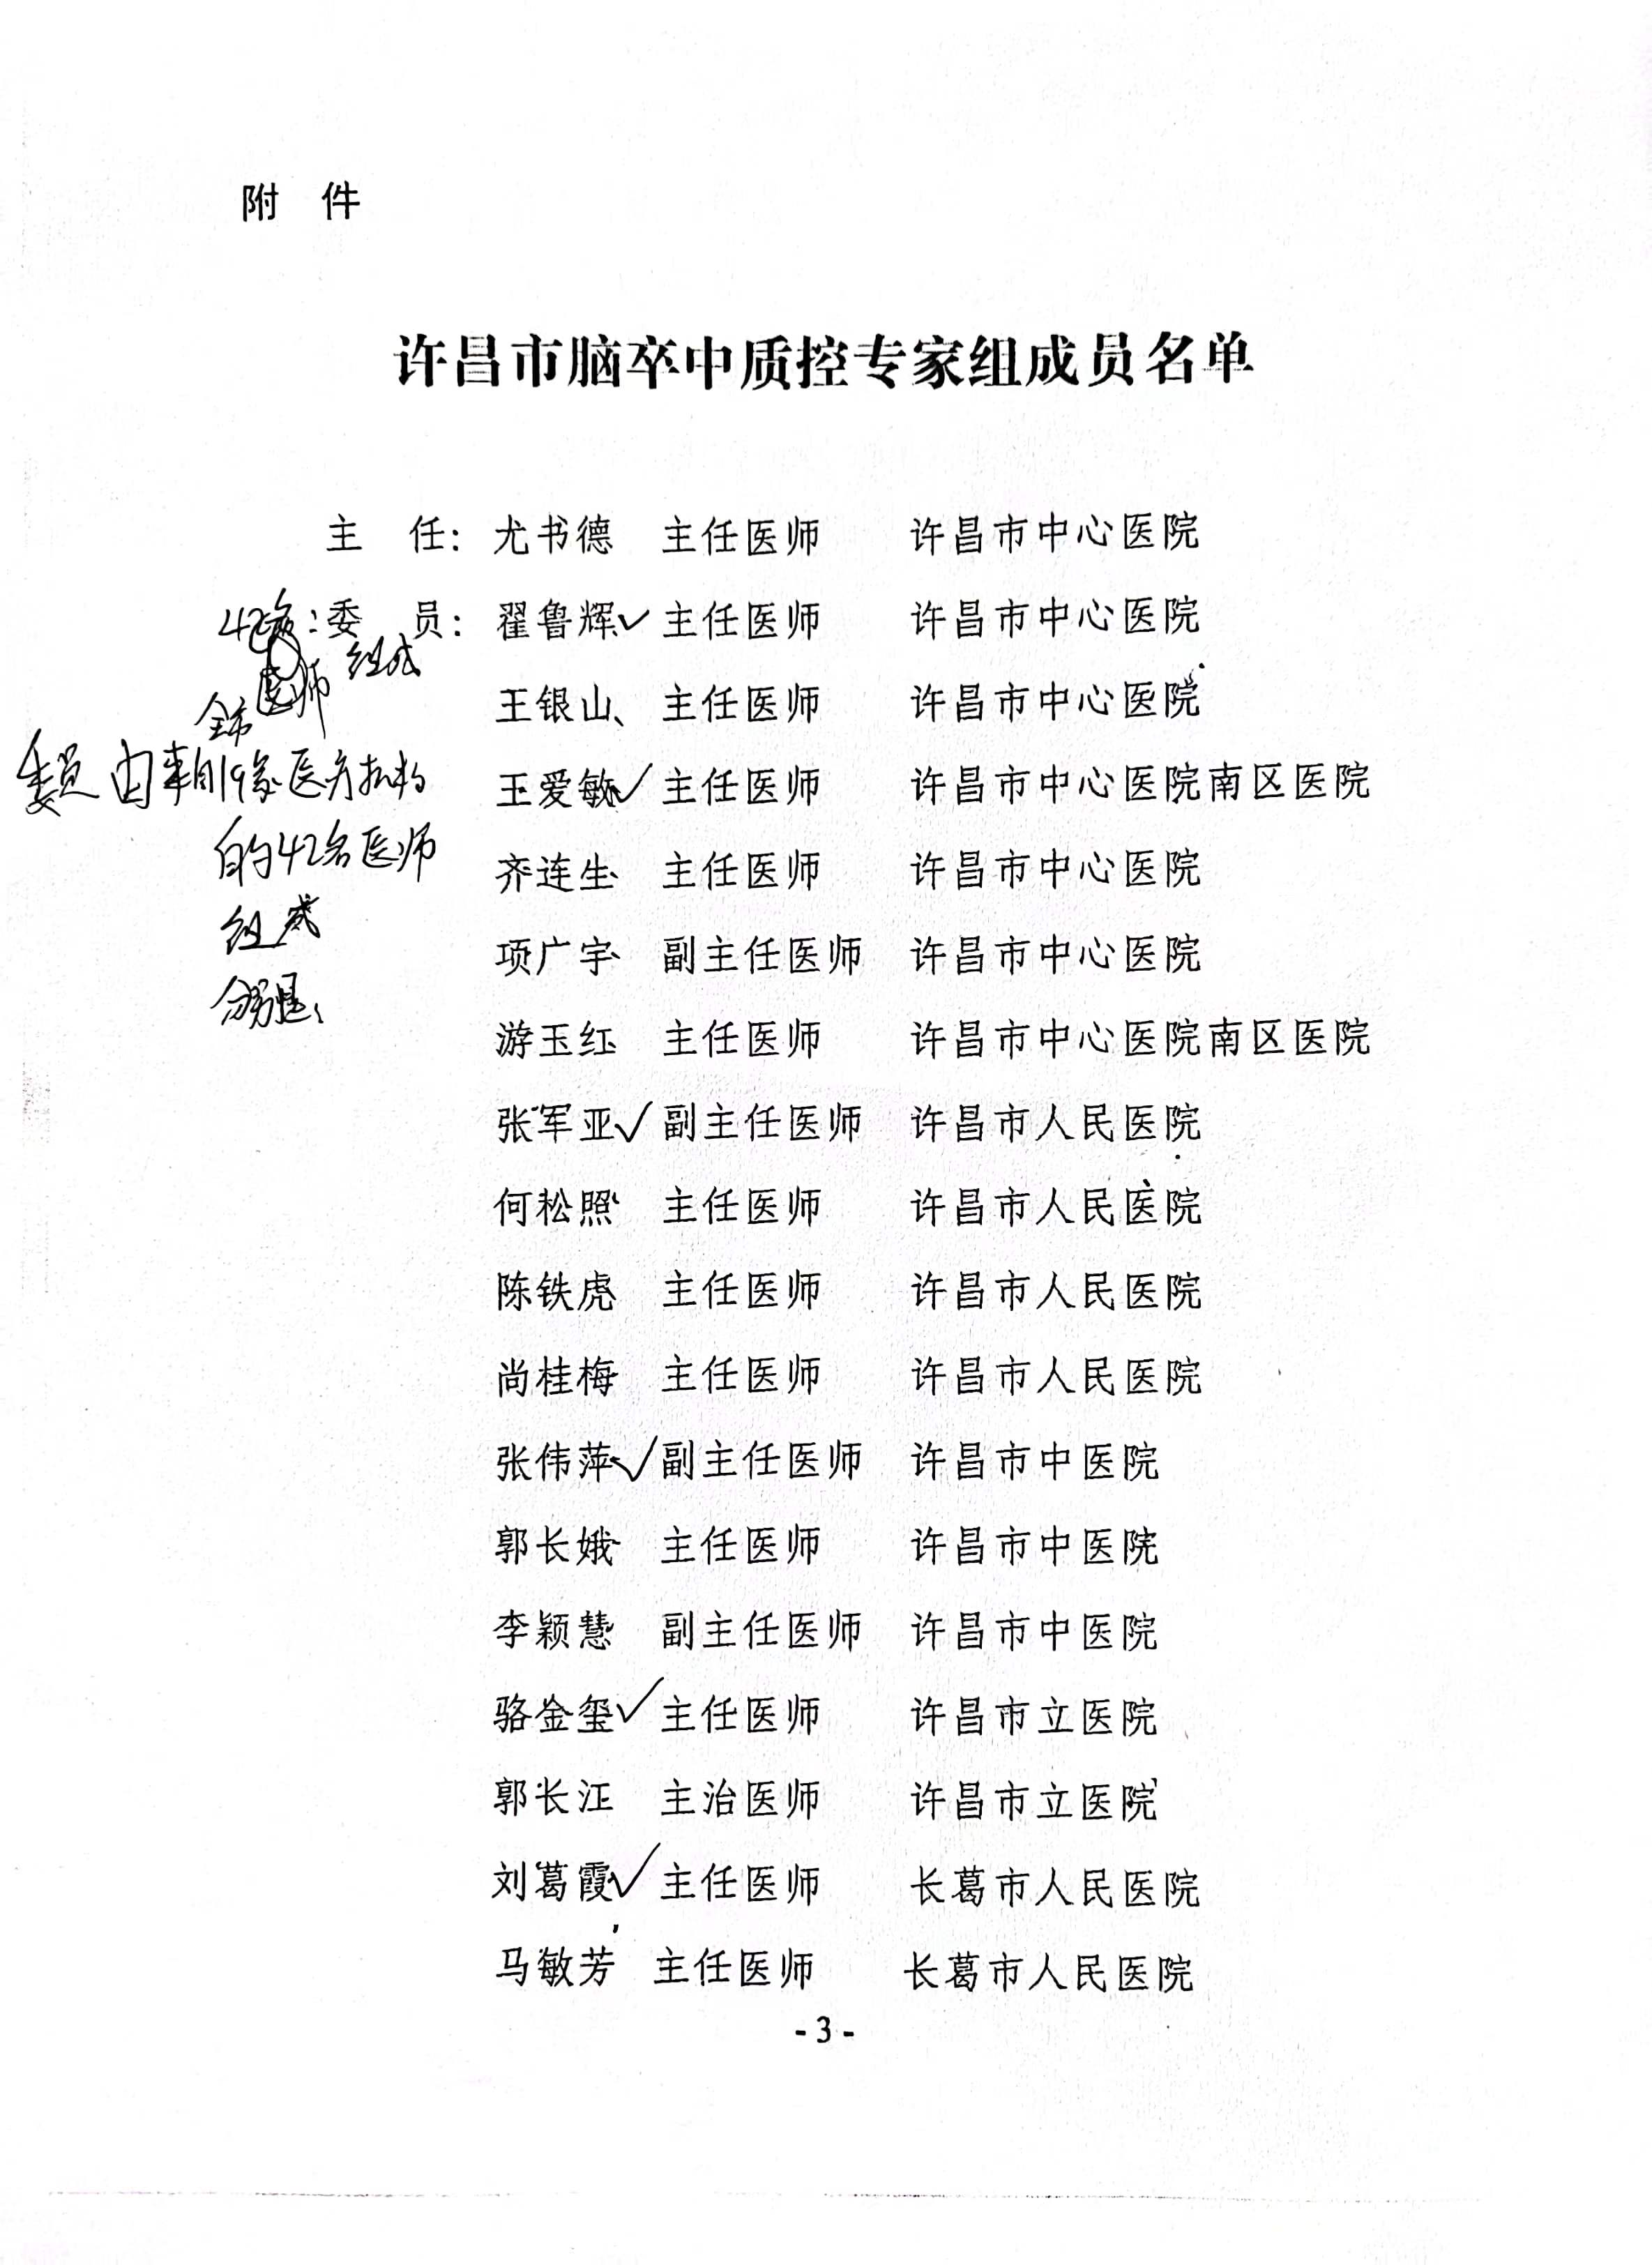 附 件
许昌市脑卒中质控专家组成员名单
主 任：尤书德 主任医师 许昌市中心医院
42名：委 员：翟鲁辉✓ 主任医师 许昌市中心医院
医师 组成
王银山、 主任医师 许昌市中心医院
全市
委员 由来自19家医疗机构
王爱敏✓ 主任医师 许昌市中心医院南区医院
的42名医师
齐连生 主任医师 许昌市中心医院
组成
项广宇 副主任医师 许昌市中心医院
分别是：
游玉红 主任医师 许昌市中心医院南区医院
张军亚✓ 副主任医师 许昌市人民医院
何松照 主任医师 许昌市人民医院
陈铁虎 主任医师 许昌市人民医院
尚桂梅 主任医师 许昌市人民医院
张伟萍✓ 副主任医师 许昌市中医院
郭长娥 主任医师 许昌市中医院
李颖慧 副主任医师 许昌市中医院
骆金玺✓ 主任医师 许昌市立医院
郭长江 主治医师 许昌市立医院
刘葛霞✓ 主任医师 长葛市人民医院
马敏芳 主任医师 长葛市人民医院
- 3 -